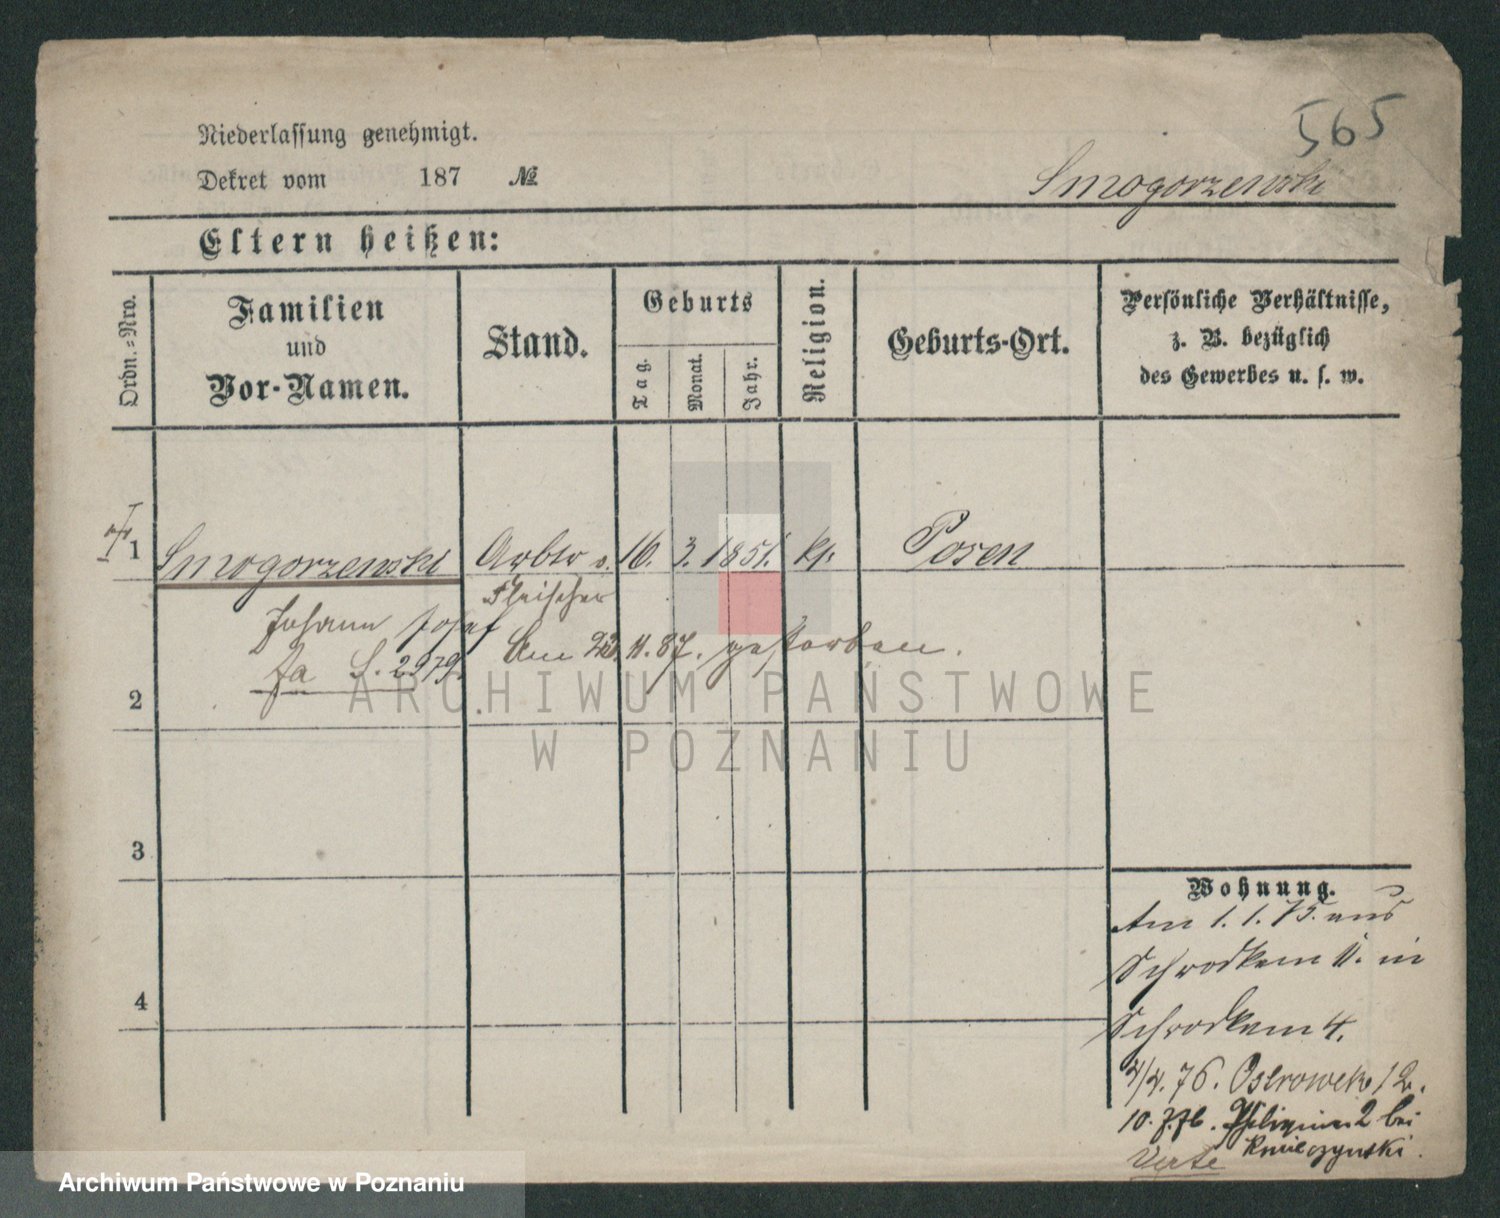 565
Niederlassung genehmigt.
Dekret vom 187 №
Smogorzewski
Eltern heißen:
Ordn.=Nro.
Familien
und
Vor-Namen.
Stand.
Geburts
Tag.
Monat.
Jahr.
Religion.
Geburts-Ort.
Persönliche Verhältnisse,
z. B. bezüglich
des Gewerbes u. s. w.
1 Smogorzewski Arbtr u. 16. 3. 1851. kf. Posen
Fleischer
Johann Josef
Am 23. 11. 87. gestorben.
Fa S. 2979.
2
3
4
Wohnung.
Am 1. 1. 75. aus
Schrodkam 11. in
Schrodkam 4.
4/4. 76. Ostrowek 12.
10. 7. 76. 2 bei
Knieczynski.
Verte
ARCHIWUM PAŃSTWOWE
W POZNANIU
Archiwum Państwowe w Poznaniu